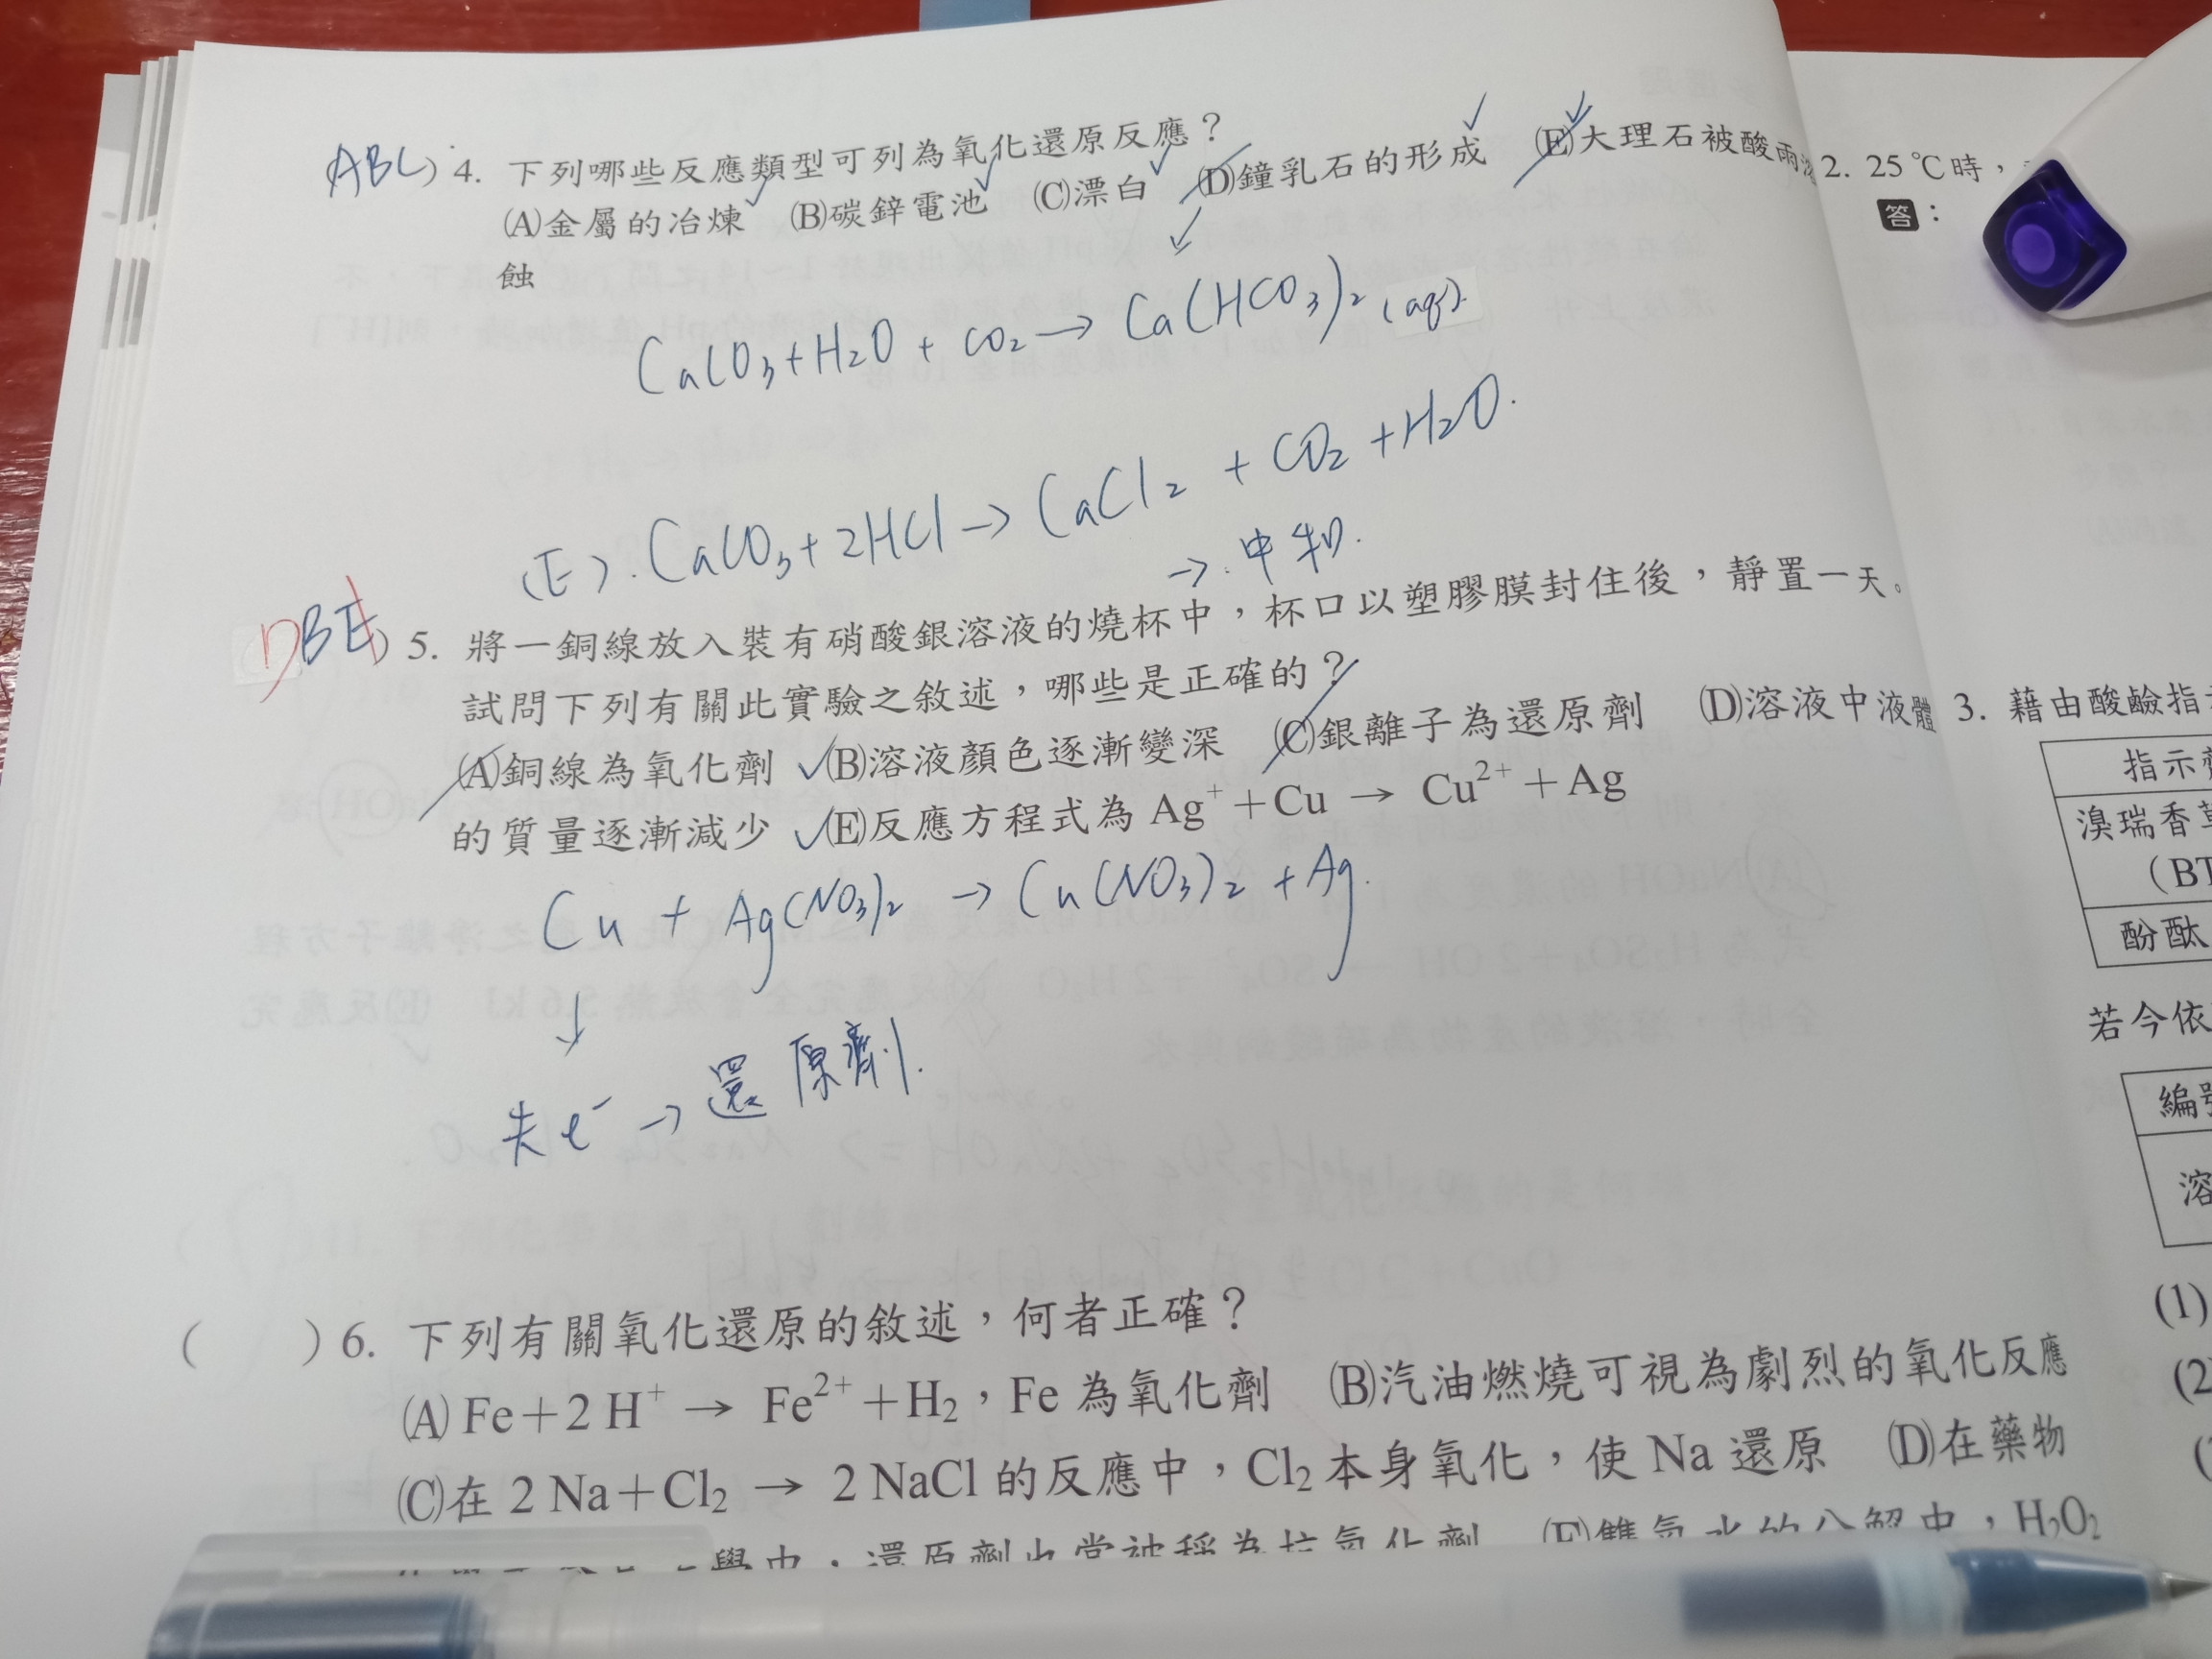 ABC) 4. 下列哪些反應類型可列為氧化還原反應？
(A)金屬的冶煉 (B)碳鋅電池 (C)漂白 (D)鐘乳石的形成 (E)大理石被酸雨
蝕
CaCO₃+H₂O + CO₂ → Ca(HCO₃)₂ (aq).
(E). CaCO₃+2HCl → CaCl₂ + CO₂ +H₂O.
→ 中和.
DBE) 5. 將一銅線放入裝有硝酸銀溶液的燒杯中，杯口以塑膠膜封住後，靜置一天。
試問下列有關此實驗之敘述，哪些是正確的？
(A)銅線為氧化劑 (B)溶液顏色逐漸變深 (C)銀離子為還原劑 (D)溶液中液體
的質量逐漸減少 (E)反應方程式為 Ag⁺+Cu → Cu²⁺+Ag
Cu + Ag(NO₃)₂ → Cu(NO₃)₂ +Ag.
↓
失e⁻ → 還原劑.
( ) 6. 下列有關氧化還原的敘述，何者正確？
(A) Fe+2 H⁺ → Fe²⁺+H₂，Fe 為氧化劑 (B)汽油燃燒可視為劇烈的氧化反應
(C)在 2 Na+Cl₂ → 2 NaCl 的反應中，Cl₂ 本身氧化，使 Na 還原 (D)在藥物
學中，還原劑也常被稱為抗氧化劑 (E)雙氧水的分解中，H₂O₂
2. 25 ℃時，
答：
3. 藉由酸鹼指
指示
溴瑞香
(BT
酚酞
若今依
編號
溶
(1)
(2